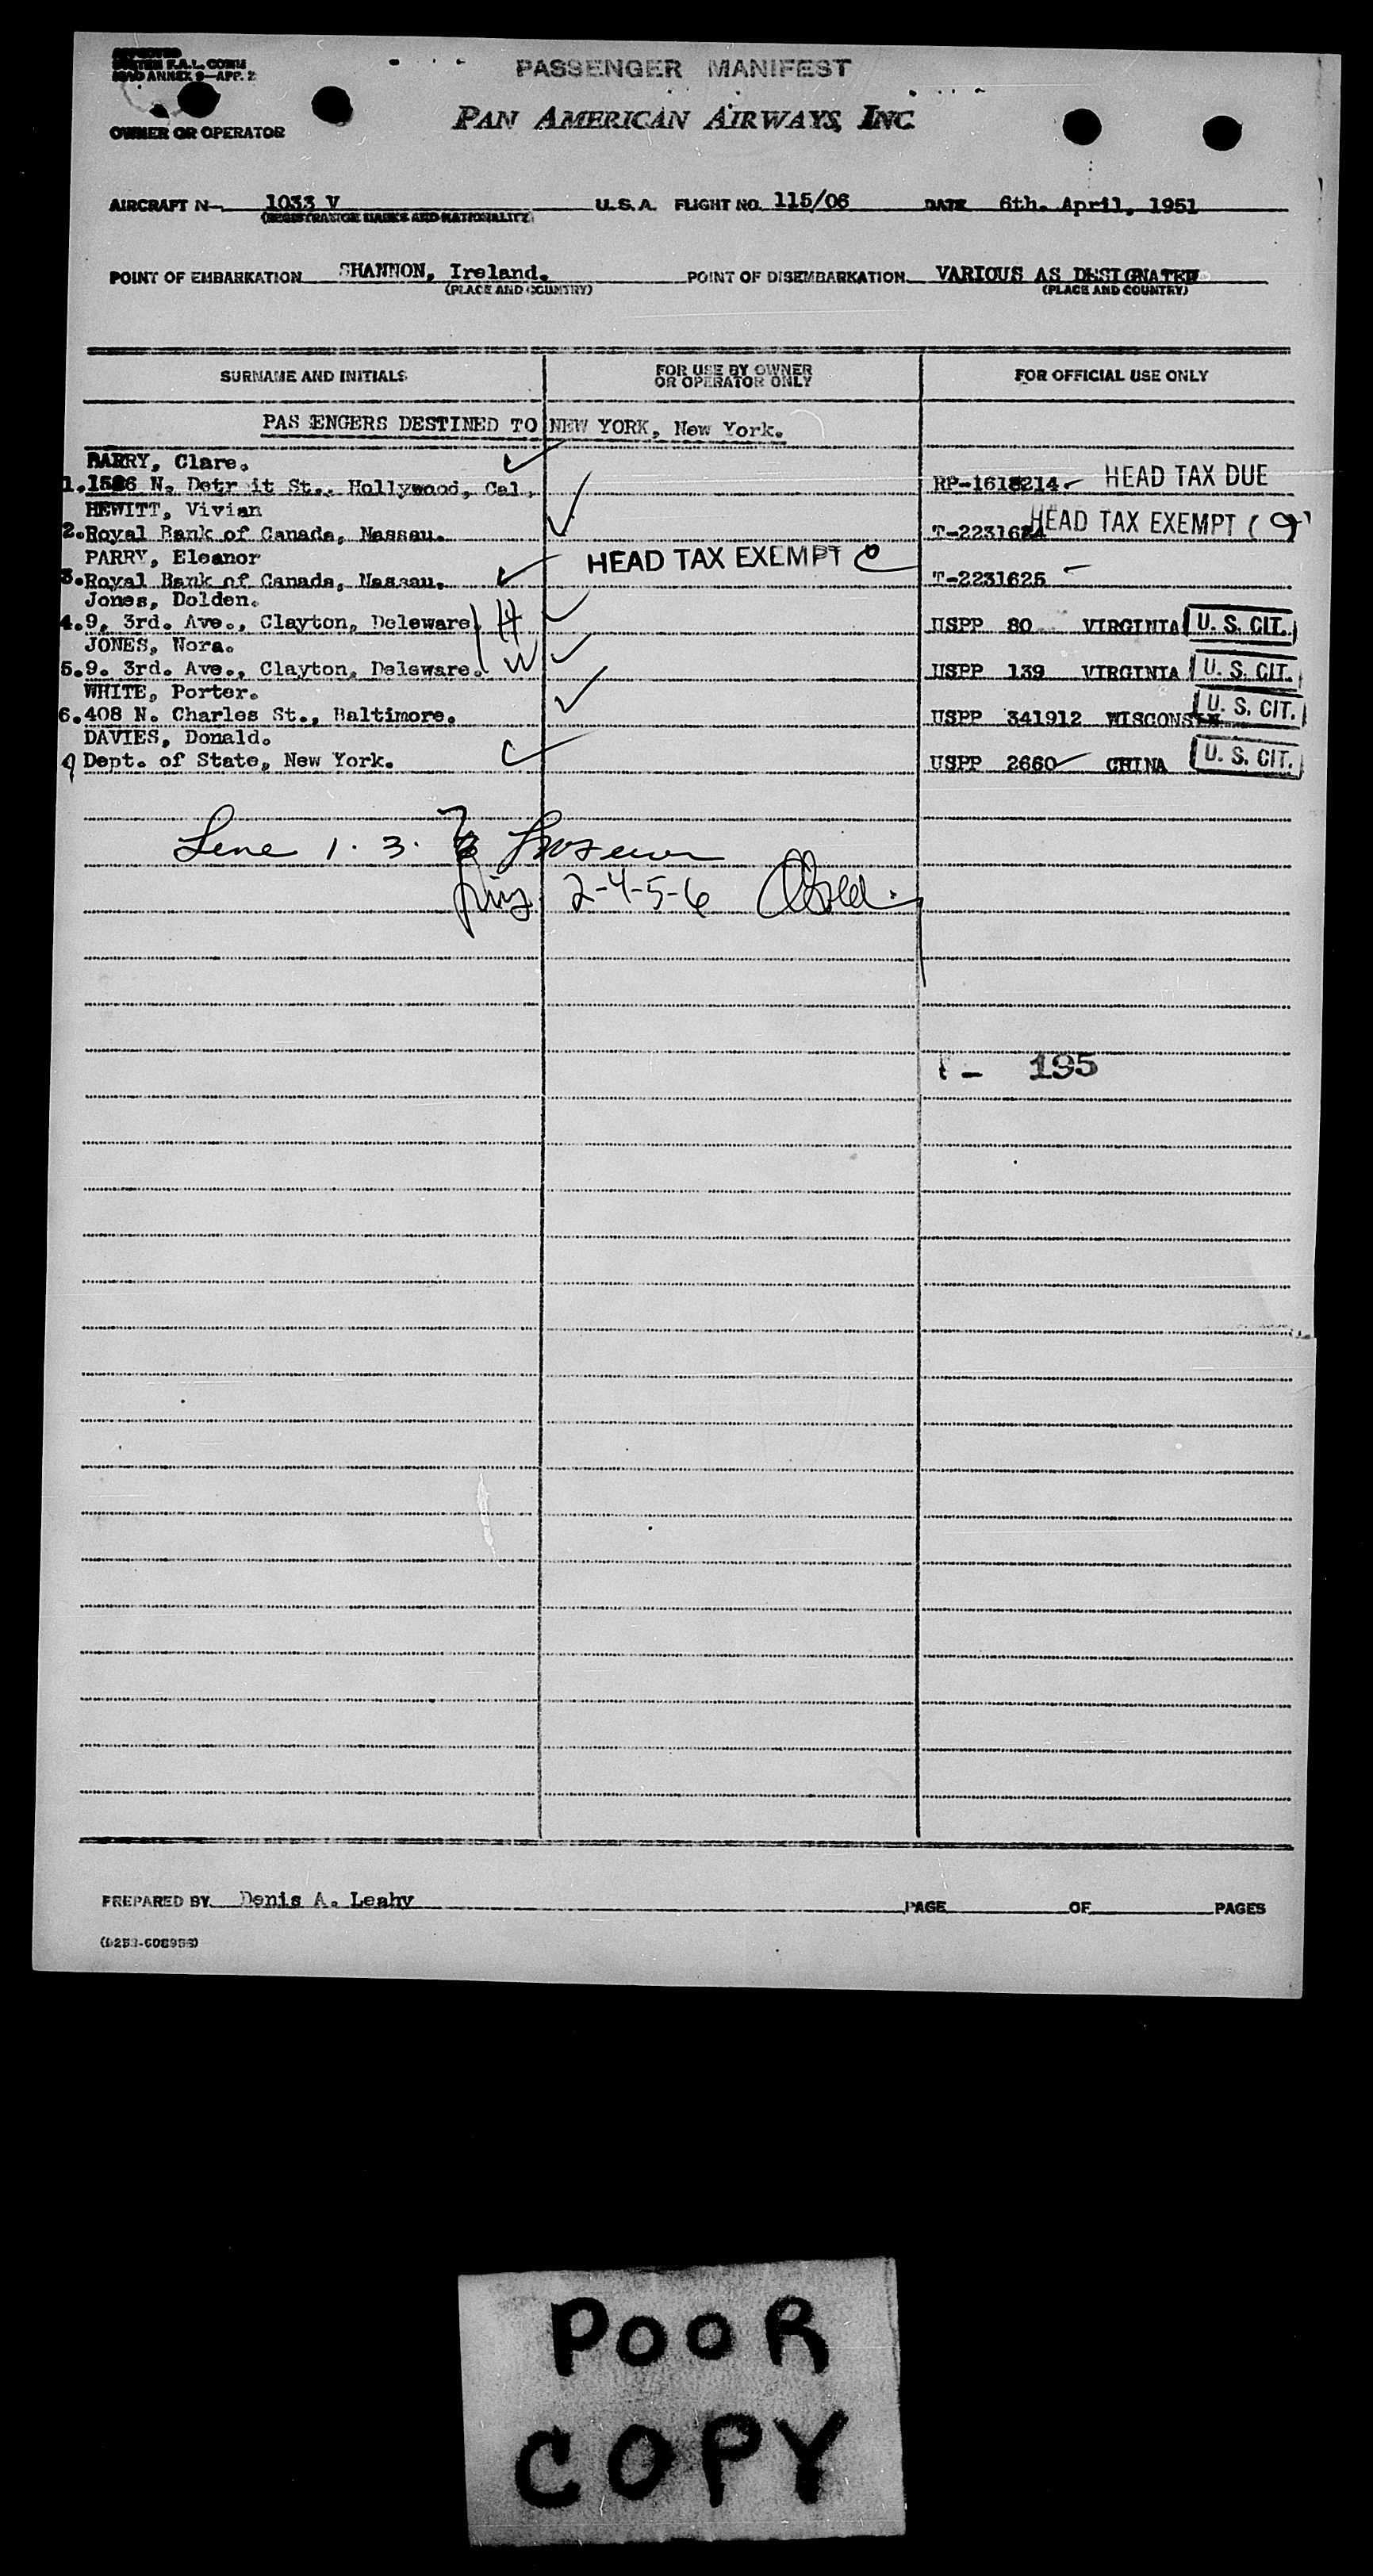 PASSENGER MANIFEST
PAN AMERICAN AIRWAYS, INC.
OWNER OR OPERATOR
AIRCRAFT N- 1033 V U.S.A. FLIGHT NO. 115/06 DATE 6th. April, 1951
(REGISTRATION MARKS AND NATIONALITY)
POINT OF EMBARKATION SHANNON, Ireland. POINT OF DISEMBARKATION VARIOUS AS DESIGNATED
(PLACE AND COUNTRY) (PLACE AND COUNTRY)
SURNAME AND INITIALS FOR USE BY OWNER OR OPERATOR ONLY FOR OFFICIAL USE ONLY
PAS ENGERS DESTINED TO NEW YORK, New York.
BARRY, Clare.
1. 1526 N. Detr it St., Hollywood, Cal. RP-1618214 HEAD TAX DUE
HEWITT, Vivian
2. Royal Bank of Canada, Nassau. T-2231624 HEAD TAX EXEMPT (
PARRY, Eleanor HEAD TAX EXEMPT
3. Royal Bank of Canada, Nassau. T-2231625
Jones, Dolden.
4. 9, 3rd. Ave., Clayton, Deleware. H USPP 80 VIRGINIA U. S. CIT.
JONES, Nora.
5. 9. 3rd. Ave., Clayton, Delaware. W USPP 139 VIRGINIA U. S. CIT.
WHITE, Porter.
6. 408 N. Charles St., Baltimore. USPP 341912 WISCONSIN U. S. CIT.
DAVIES, Donald.
Dept. of State, New York. USPP 2660 CHINA U. S. CIT.
Line 1. 3. 7
2-4-5-6
195
PREPARED BY Denis A. Leahy PAGE OF PAGES
POOR
COPY